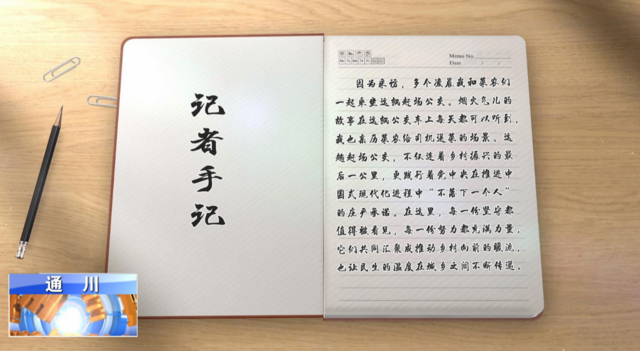 记者手记
Memo No.
Date
因为采访，多个凌晨我和菜农们
一起乘坐这辆起场公交。烟火气儿的
故事在这辆公交车上每天都可以听到，
我也亲历菜农给司机送菜的场景。这
趟起场公交，不仅连着乡村振兴的最
后一公里，更践行着党中央在推进中
国式现代化进程中“不落下一个人”
的庄严承诺。在这里，每一份坚守都
值得被看见，每一份努力都充满力量，
它们共同汇聚成推动乡村向前的暖流，
也让民生的温度在城乡之间不断传递。
通川